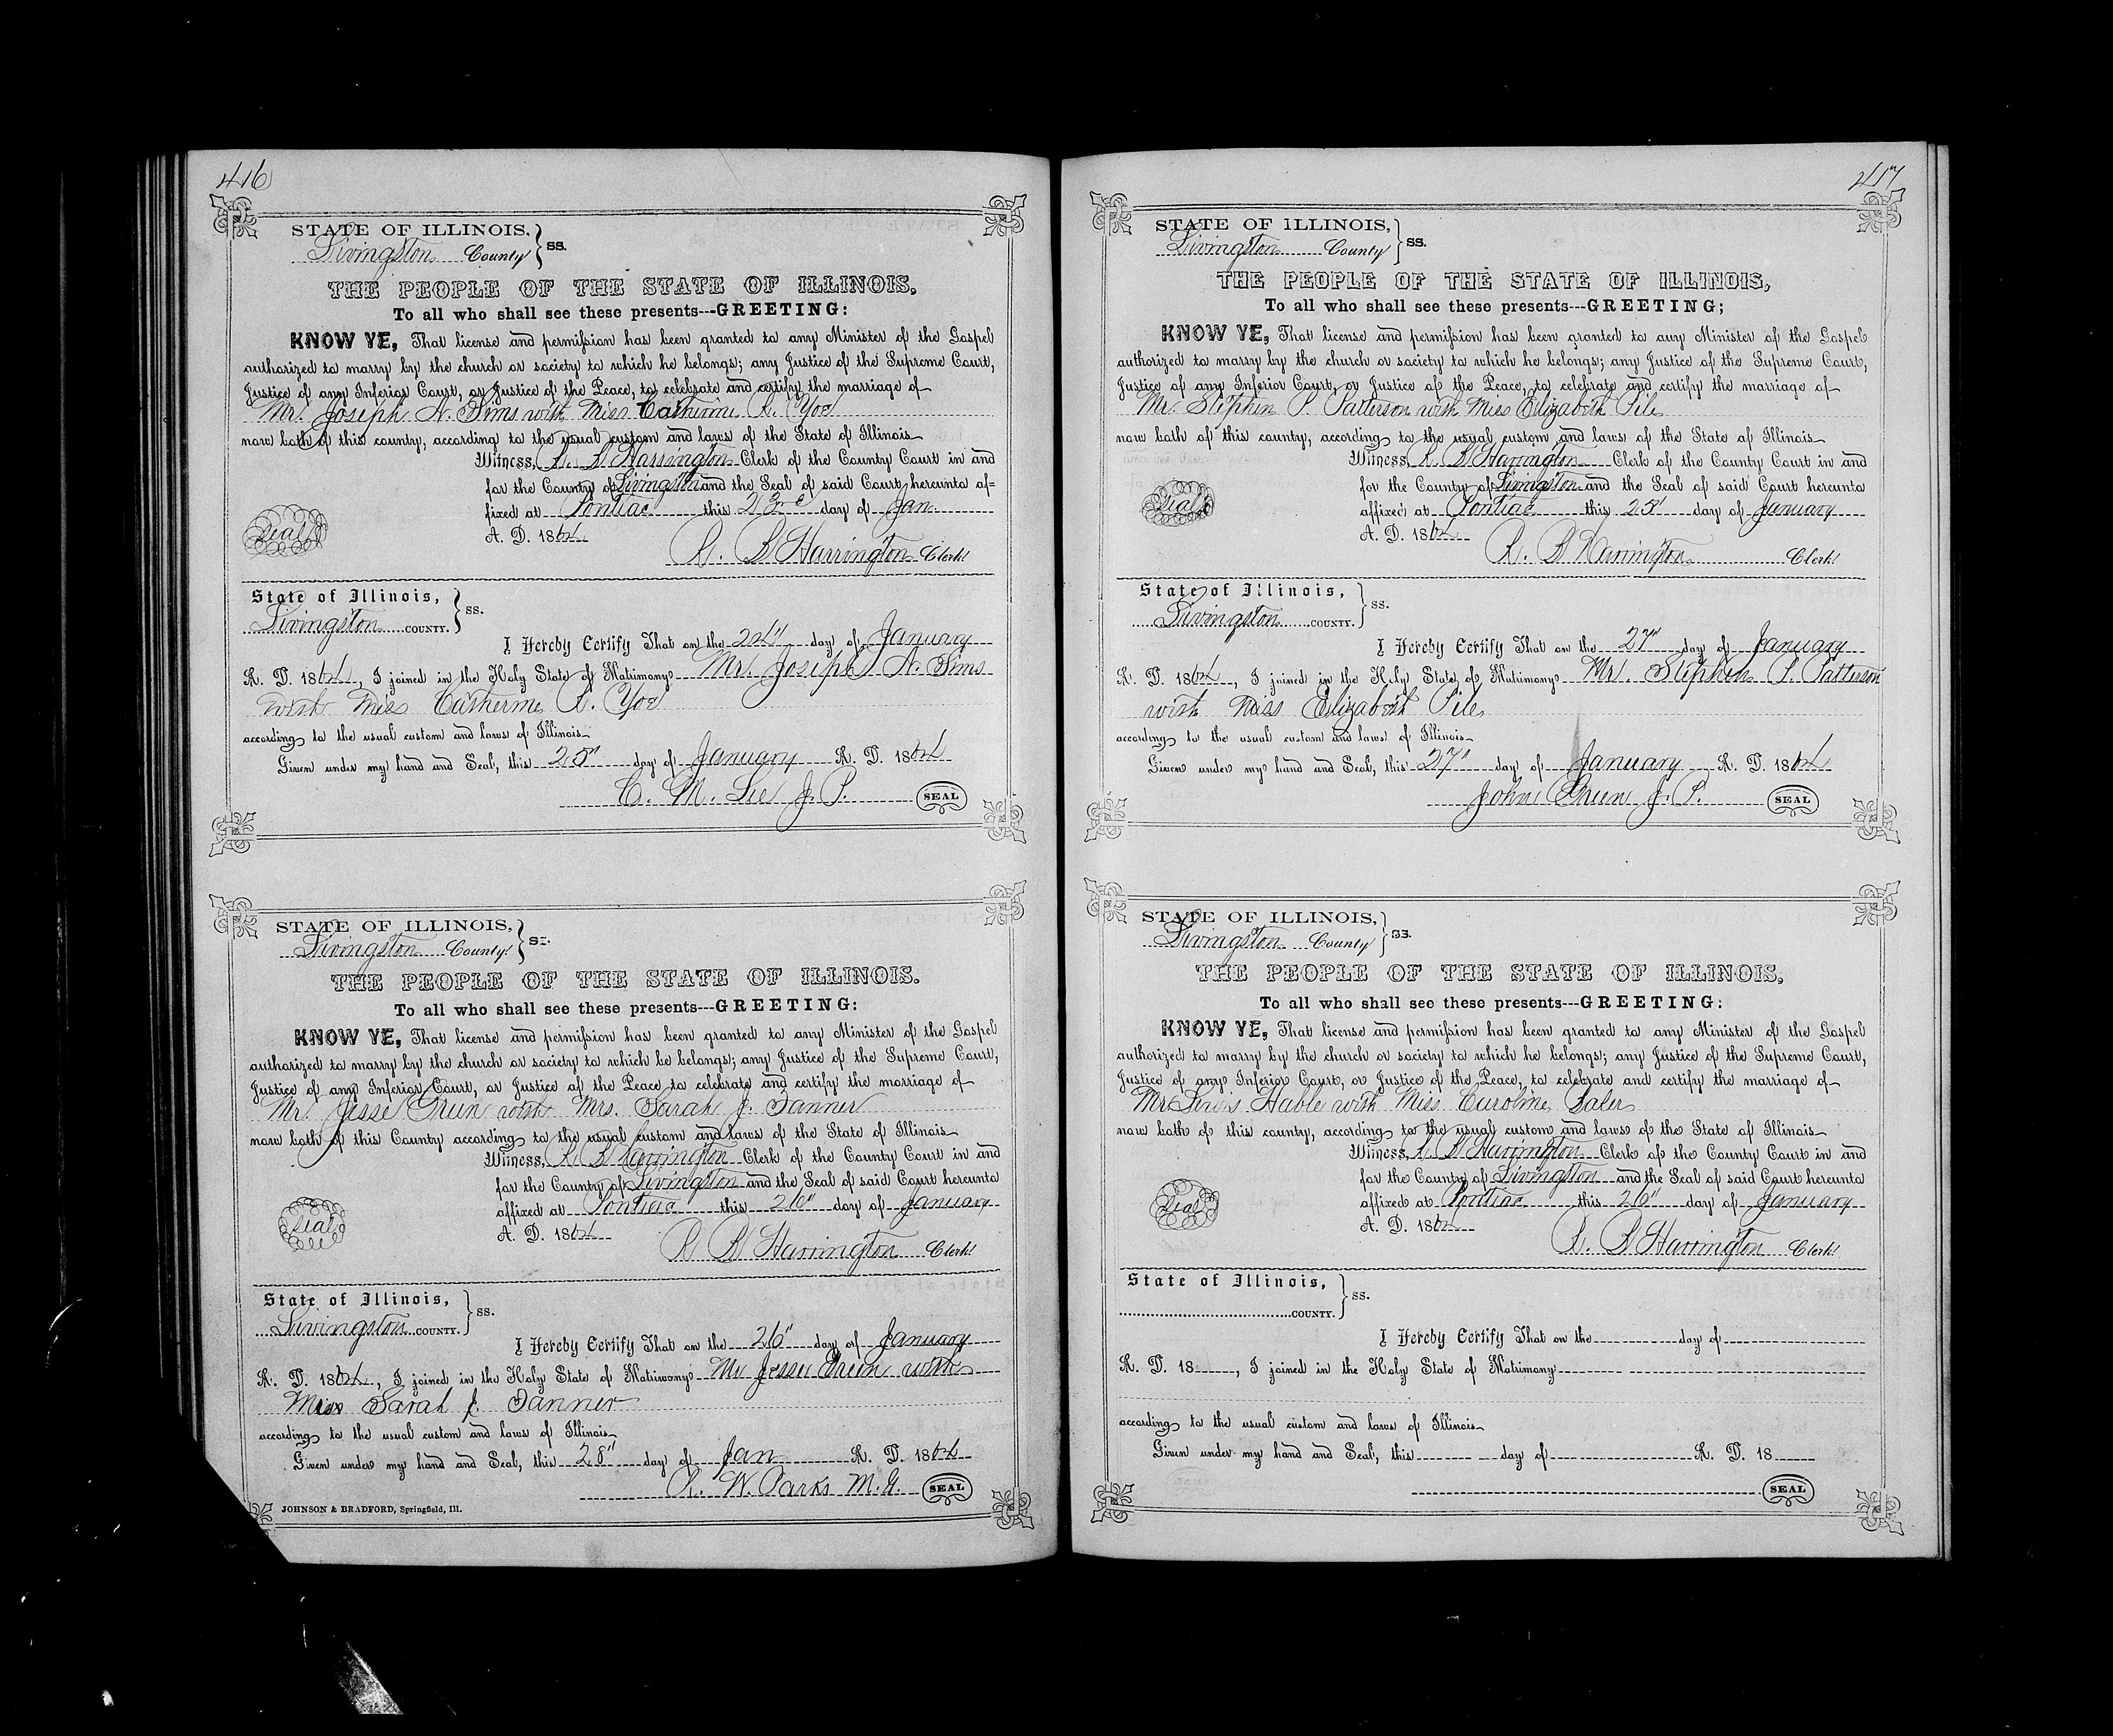 416
STATE OF ILLINOIS,
Livingston County } ss.
THE PEOPLE OF THE STATE OF ILLINOIS.
To all who shall see these presents---GREETING:
KNOW YE, That license and permission has been granted to any Minister of the Gospel
authorized to marry by the church or society to which he belongs; any Justice of the Supreme Court,
Justice of any Inferior Court, or Justice of the Peace, to celebrate and certify the marriage of
Mr. Joseph N. Sims with Miss Catherine R. Yoe
now both of this county, according to the usual custom and laws of the State of Illinois
Witness, R. B Harrington Clerk of the County Court in and
for the County of Livingston and the Seal of said Court hereunto af-
Seal
fixed at Pontiac this 23rd day of Jan
A. D. 1864
R. B Harrington Clerk
State of Illinois,
Livingston COUNTY. } SS.
I Hereby Certify That on the 24" day of January
A. D. 1864, I joined in the Holy State of Matrimony Mr. Joseph N. Sims
with Miss Catherine R. Yoe
according to the usual custom and laws of Illinois
Given under my hand and Seal, this 25" day of January A. D. 1864
C. M. Lee J. P. SEAL
STATE OF ILLINOIS,
Livingston County } ss.
THE PEOPLE OF THE STATE OF ILLINOIS.
To all who shall see these presents---GREETING:
KNOW YE, That license and permission has been granted to any Minister of the Gospel
authorized to marry by the church or society to which he belongs; any Justice of the Supreme Court,
Justice of any Inferior Court, or Justice of the Peace to celebrate and certify the marriage of
Mr. Jesse Green with Mrs. Sarah J. Tanner
now both of this County according to the usual custom and laws of the State of Illinois
Witness, R B Harrington Clerk of the County Court in and
for the County of Livingston and the Seal of said Court hereunto
Seal
affixed at Pontiac this 26" day of January
A. D. 1864
R B Harrington Clerk
State of Illinois,
Livingston COUNTY. } SS.
I Hereby Certify That on the 26" day of January
A. D. 1864, I joined in the Holy State of Matrimony Mr Jesse Green with
Miss Sarah J. Tanner
according to the usual custom and laws of Illinois
Given under my hand and Seal, this 28" day of Jan A. D. 1864
R. W. Parks M. G. SEAL
JOHNSON & BRADFORD, Springfield, Ill.
417
STATE OF ILLINOIS,
Livingston County } ss.
THE PEOPLE OF THE STATE OF ILLINOIS,
To all who shall see these presents---GREETING;
KNOW YE, That license and permission has been granted to any Minister of the Gospel
authorized to marry by the church or society to which he belongs; any Justice of the Supreme Court,
Justice of any Inferior Court, or Justice of the Peace, to celebrate and certify the marriage of
Mr. Stephen P. Patterson with Miss Elizabeth Pile
now both of this county, according to the usual custom and laws of the State of Illinois
Witness, R B Harrington Clerk of the County Court in and
for the County of Livingston and the Seal of said Court hereunto
Seal
affixed at Pontiac this 25" day of January
A. D. 1864
R. B Harrington Clerk
State of Illinois,
Livingston COUNTY. } SS.
I Hereby Certify That on the 27" day of January
A. D. 1864, I joined in the Holy State of Matrimony Mr. Stephen P. Patterson
with Miss Elizabeth Pile
according to the usual custom and laws of Illinois
Given under my hand and Seal, this 27" day of January A. D. 1864
John Green J. P. SEAL
STATE OF ILLINOIS,
Livingston County } ss.
THE PEOPLE OF THE STATE OF ILLINOIS,
To all who shall see these presents---GREETING:
KNOW YE, That license and permission has been granted to any Minister of the Gospel
authorized to marry by the church or society to which he belongs; any Justice of the Supreme Court,
Justice of any Inferior Court, or Justice of the Peace, to celebrate and certify the marriage of
Mr Lewis Hable with Miss Caroline Saler
now both of this county, according to the usual custom and laws of the State of Illinois
Witness, R. B Harrington Clerk of the County Court in and
for the County of Livingston and the Seal of said Court hereunto
Seal
affixed at Pontiac this 26" day of January
A. D. 1864
R. B Harrington Clerk
State of Illinois,
COUNTY. } SS.
I Hereby Certify That on the day of
A. D. 18 , I joined in the Holy State of Matrimony
according to the usual custom and laws of Illinois
Given under my hand and Seal, this day of A. D. 18
SEAL